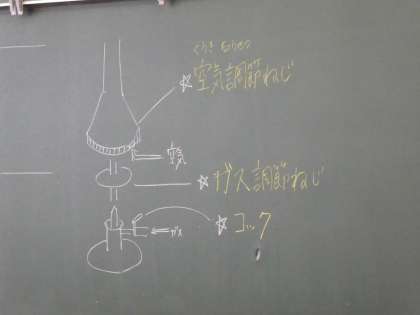 くうき ちょうせつ
☆空気調節ねじ
空気
☆ガス調節ねじ
☆コック
ガス